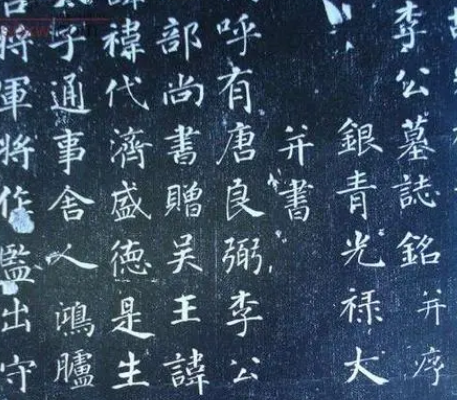 李公墓誌銘并序
銀青光禄大
并書
呼有唐良弼李公
部尚書贈吳王諱
諱禕代濟盛德是生
子通事舍人鴻臚
將軍將作監出守